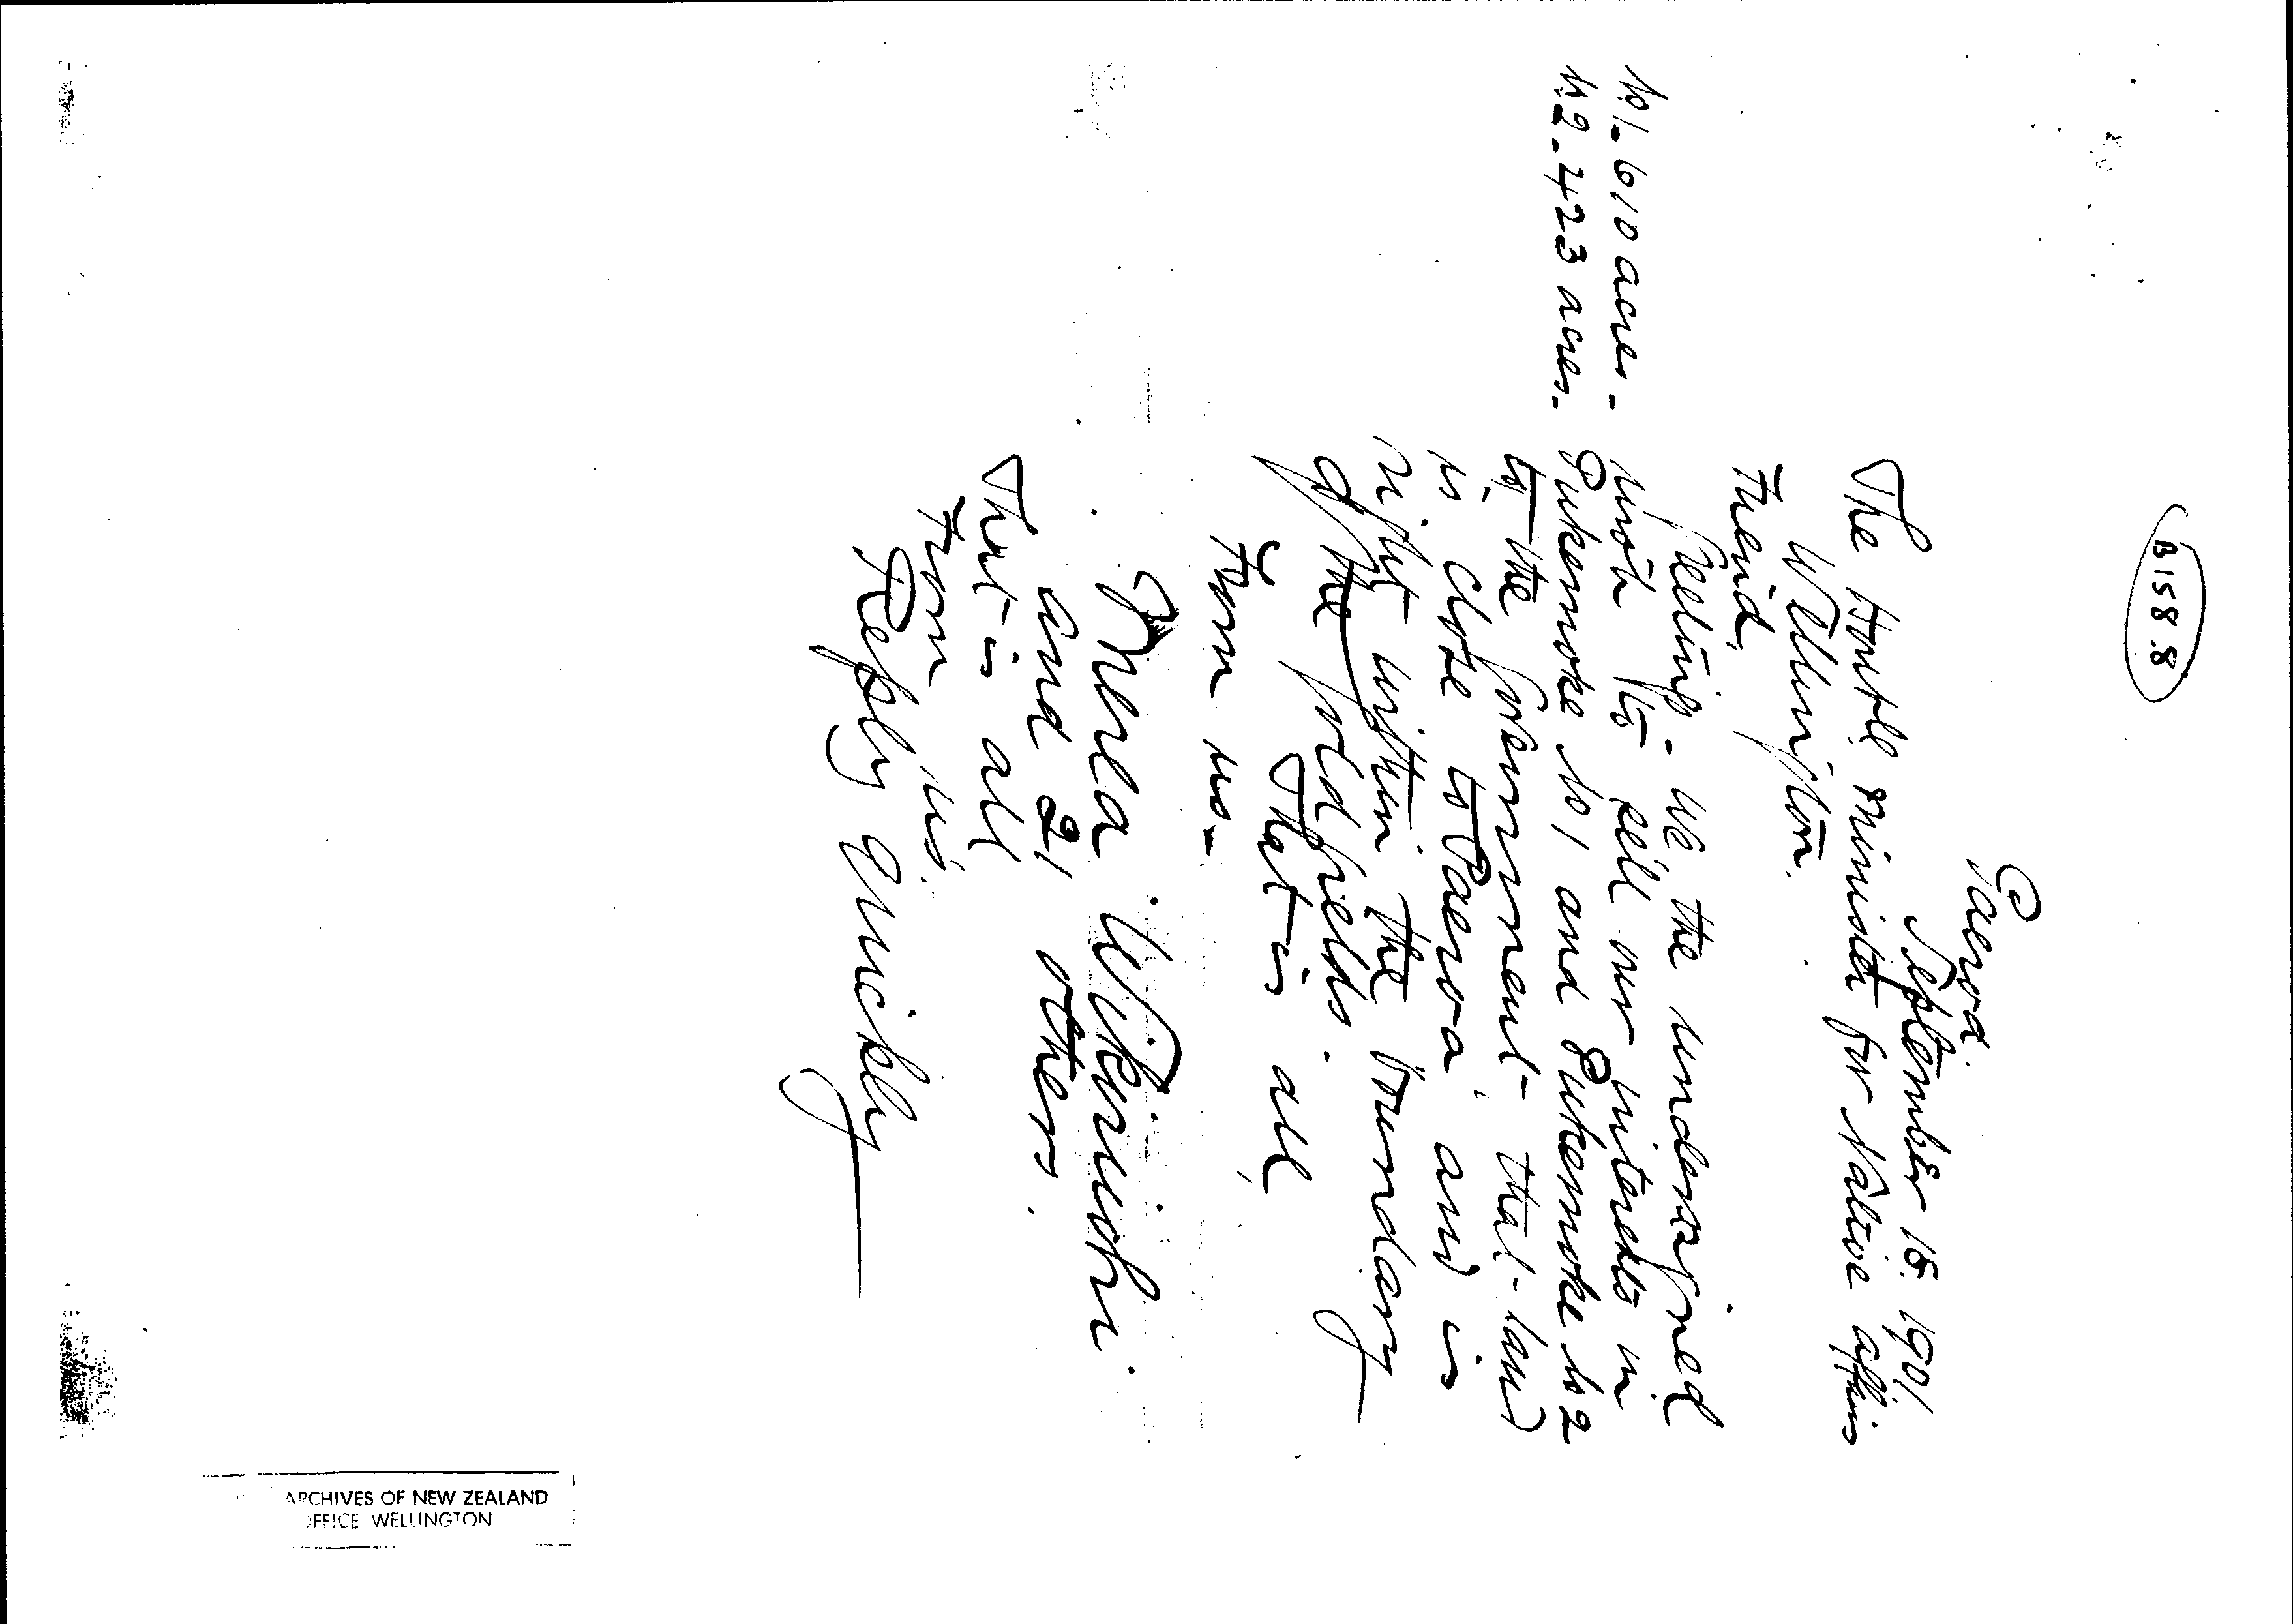 B158.8
Paeroa.
September 18. 1901
The Honble Minister for Native Affairs
Wellington.
Friend,
Greeting - we the undersigned
wish to sell our interests in
No 1 - 610 acres -
Pukemoke No 1 and Pukemoke No 2
No 2 - 423 acres -
to the Government. that land
is close to Paeroa and is
right within the boundary
of the gold fields. That is all
from us -
Merea Wikiriwhi.
and 21 others.
That is all
from us.
Reply quickly
ARCHIVES OF NEW ZEALAND
OFFICE WELLINGTON